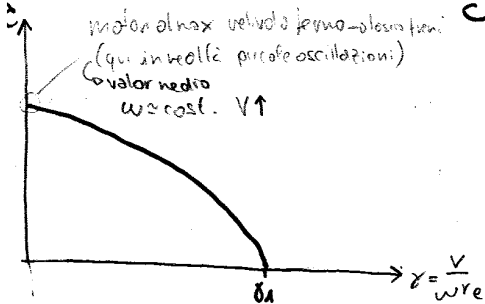 C
motore al max veicolo fermo
(qui in realtà piccole oscillazioni)
valor medio
ω≃cost. V↑
γ = V/ωre
γ1